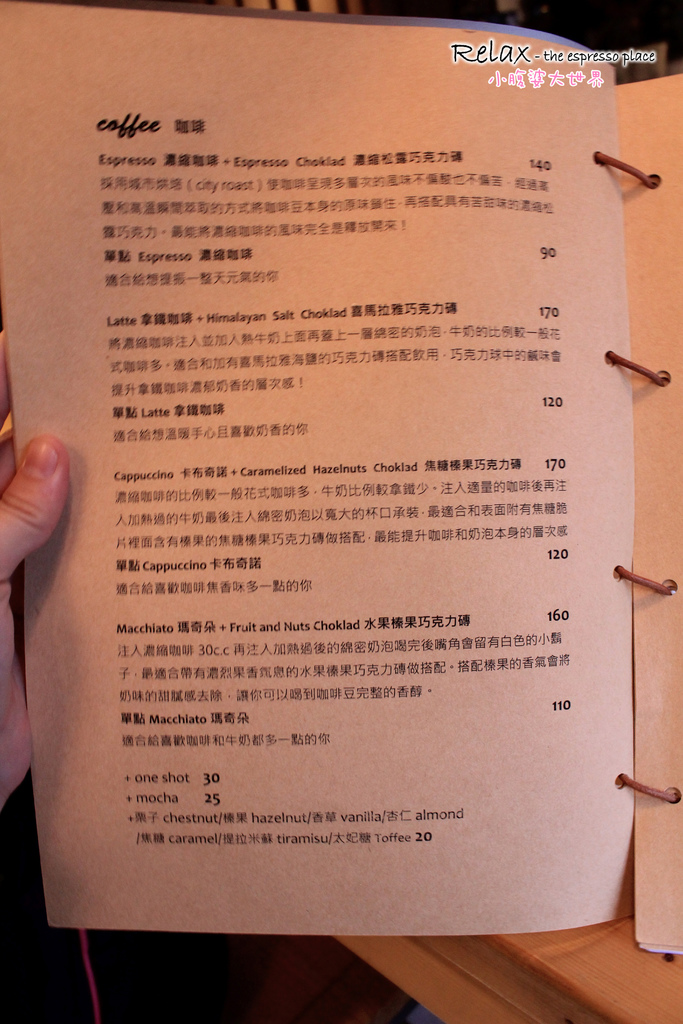 Relax - the espresso place
小腹婆大世界
coffee 咖啡
Espresso 濃縮咖啡 + Espresso Choklad 濃縮松露巧克力磚 140
採用城市烘焙（city roast）使咖啡呈現多層次的風味不偏酸也不偏苦，經過高
壓和高溫瞬間萃取的方式將咖啡豆本身的原味鎖住，再搭配具有苦甜味的濃縮松
露巧克力。最能將濃縮咖啡的風味完全是釋放開來！
單點 Espresso 濃縮咖啡 90
適合給想提振一整天元氣的你
Latte 拿鐵咖啡 + Himalayan Salt Choklad 喜馬拉雅巧克力磚 170
將濃縮咖啡注入並加入熱牛奶上面再蓋上一層綿密的奶泡，牛奶的比例較一般花
式咖啡多。適合和加有喜馬拉雅海鹽的巧克力磚搭配飲用，巧克力球中的鹹味會
提升拿鐵咖啡濃郁奶香的層次感！
單點 Latte 拿鐵咖啡 120
適合給想溫暖手心且喜歡奶香的你
Cappuccino 卡布奇諾 + Caramelized Hazelnuts Choklad 焦糖榛果巧克力磚 170
濃縮咖啡的比例較一般花式咖啡多，牛奶比例較拿鐵少。注入適量的咖啡後再注
入加熱過的牛奶最後注入綿密奶泡以寬大的杯口承裝，最適合和表面附有焦糖脆
片裡面含有榛果的焦糖榛果巧克力磚做搭配，最能提升咖啡和奶泡本身的層次感
單點 Cappuccino 卡布奇諾 120
適合給喜歡咖啡焦香味多一點的你
Macchiato 瑪奇朵 + Fruit and Nuts Choklad 水果榛果巧克力磚 160
注入濃縮咖啡 30c.c 再注入加熱過後的綿密奶泡喝完後嘴角會留有白色的小鬍
子，最適合帶有濃烈果香氣息的水果榛果巧克力磚做搭配。搭配榛果的香氣會將
奶味的甜膩感去除，讓你可以喝到咖啡豆完整的香醇。
單點 Macchiato 瑪奇朵 110
適合給喜歡咖啡和牛奶都多一點的你
+ one shot 30
+ mocha 25
+栗子 chestnut/榛果 hazelnut/香草 vanilla/杏仁 almond
/焦糖 caramel/提拉米蘇 tiramisu/太妃糖 Toffee 20